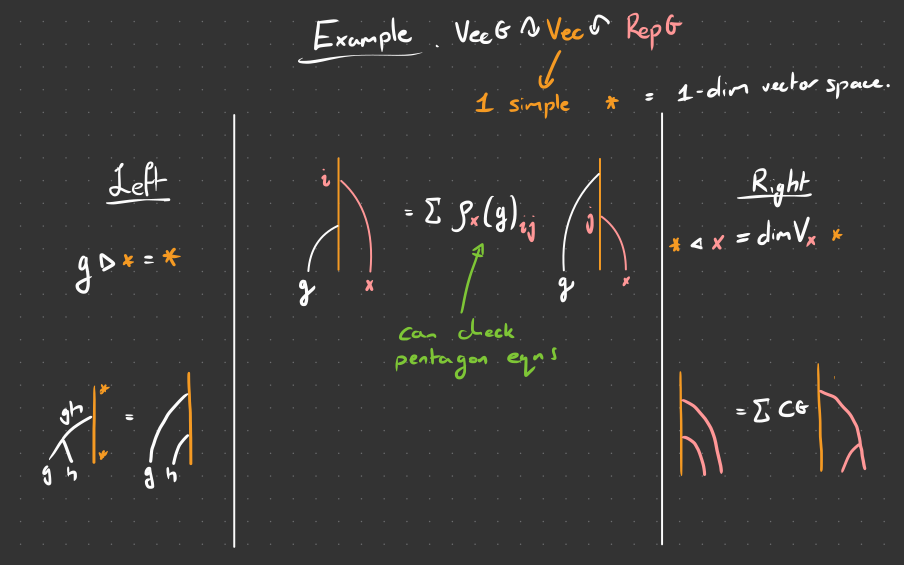 Example. VecG ↷ Vec ↶ RepG
1 simple * = 1-dim vector space.
Left
g ▷ * = *
gh * = 
*
g h g h
i = Σ ρx(g)ij j
g x g x
can check
pentagon eqns
Right
* ◁ x = dimVx *
= Σ CG